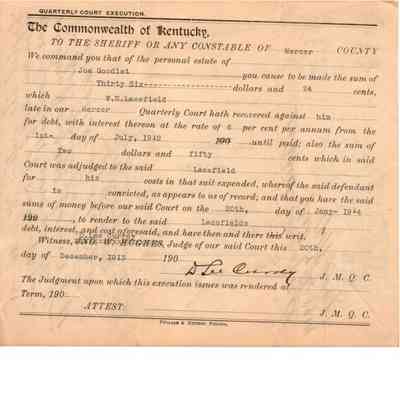 QUARTERLY COURT EXECUTION.
The Commonwealth of Kentucky,
TO THE SHERIFF OR ANY CONSTABLE OF Mercer COUNTY
We command you that of the personal estate of
Joe Goodlet you cause to be made the sum of
Thirty Six dollars and 24 cents,
which W.H. Lacefield
late in our Mercer Quarterly Court hath recovered against him
for debt, with interest thereon at the rate of 6 per cent per annum from the
1st- day of July, 1912 190 until paid; also the sum of
Two dollars and fifty cents which in said
Court was adjudged to the said Lacefield
for his costs in that suit expended, whereof the said defendant
is convicted, as appears to us of record; and that you have the said
sums of money before our said Court on the 20th, day of Jany- 1914
190 , to render to the said Lacefields
debt, interest, and cost aforesaid, and have then and there this writ.
Witness, JNO. W. HUGHES, Judge of our said Court this 20th,
day of December, 1913 190
D Lee Curry J. M. Q. C.
The Judgment upon which this execution issues was rendered at
Term, 190
ATTEST: J. M. Q. C.